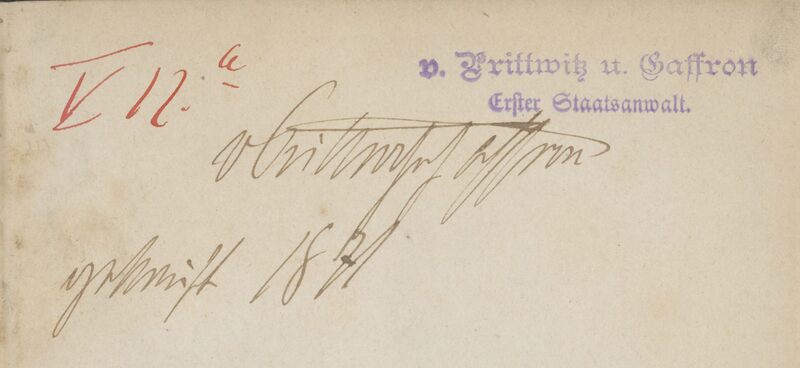 V 12.a
v. Prittwitz u. Gaffron
Erster Staatsanwalt.
vPrittwitzGaffron
gekauft 1871